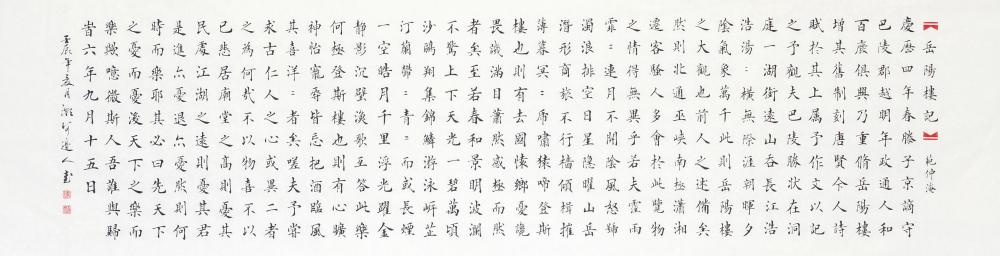 【岳陽樓記】 范仲淹
慶歷四年春滕子京謫守
巴陵郡越明年政通人和
百廢俱興乃重修岳陽樓
增其舊制刻唐賢今人詩
賦於其上屬予作文以記
之予觀夫巴陵勝狀在洞
庭一湖銜遠山吞長江浩
浩湯〻橫無際涯朝暉夕
陰氣象萬千此則岳陽樓
之大觀也前人之述備矣
然則北通巫峽南極瀟湘
遷客騷人多會於此覽物
之情得無異乎若夫霪雨
霏〻連月不開陰風怒號
濁浪排空日星隱曜山岳
潛形商旅不行檣傾楫摧
薄暮冥〻虎嘯猿啼登斯
樓也則有去國懷鄉憂讒
畏譏滿目蕭然感極而悲
者矣至若春和景明波瀾
不驚上下天光一碧萬頃
沙鷗翔集錦鱗游泳岸芷
汀蘭鬱〻青〻而或長煙
一空皓月千里浮光躍金
靜影沉璧漁歌互答此樂
何極登斯樓也則有心曠
神怡寵辱皆忘把酒臨風
其喜洋〻者矣嗟夫予嘗
求古仁人之心或異二者
之為何哉不以物喜不以
己悲居廟堂之高則憂其
民處江湖之遠則憂其君
是進亦憂退亦憂然則何
時而樂耶其必曰先天下
之憂而憂後天下之樂而
樂歟噫微斯人吾誰與歸
時六年九月十五日
壬辰年夏月邊人書